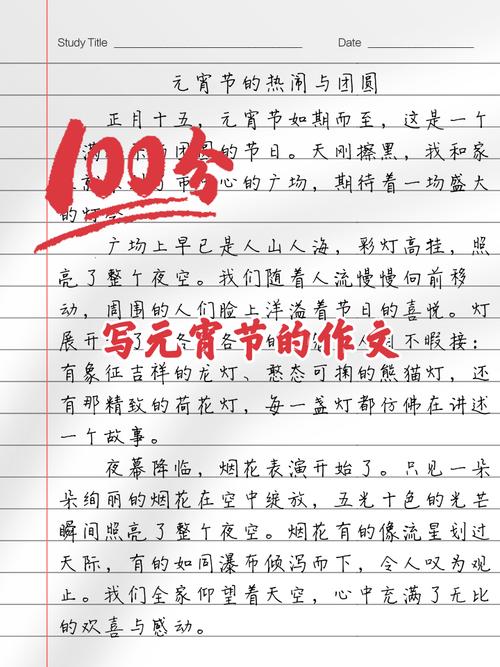 Study Title
Date
元宵节的热闹与团圆
正月十五，元宵节如期而至，这是一个
满 团圆的节日。天刚擦黑，我和家
市 心的广场，期待着一场盛大
的灯
100分
广场上早已是人山人海，彩灯高挂，照
亮了整个夜空。我们随着人流慢慢向前移
动，周围的人们脸上洋溢着节日的喜悦。灯
展开 了 各 各 的 人 不暇接：
写元宵节的作文
有象征吉祥的龙灯、憨态可掬的熊猫灯，还
有那精致的荷花灯，每一盏灯都仿佛在讲述
一个故事。
夜幕降临，烟花表演开始了。只见一朵
朵绚丽的烟花在空中绽放，五光十色的光芒
瞬间照亮了整个夜空。烟花有的像流星划过
天际，有的如同瀑布倾泻而下，令人叹为观
止。我们全家仰望着天空，心中充满了无比
的欢喜与感动。